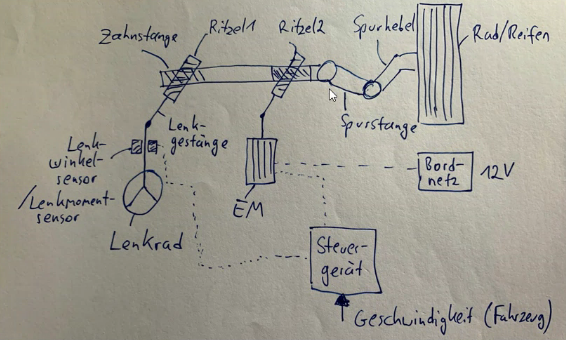 Zahnstange
Ritzel1
Ritzel2
Spurhebel
Rad/Reifen
Lenk-
gestänge
Spurstange
Lenk-
winkel-
sensor
/Lenkmoment-
sensor
EM
Bord-
netz
12V
Lenkrad
Steuer-
gerät
Geschwindigkeit (Fahrzeug)